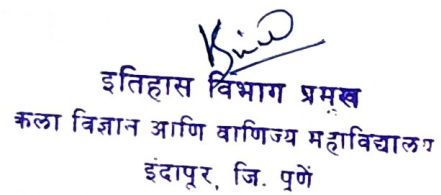 इतिहास विभाग प्रमुख
कला विज्ञान आणि वाणिज्य महाविद्यालय
इंदापूर, जि. पुणें